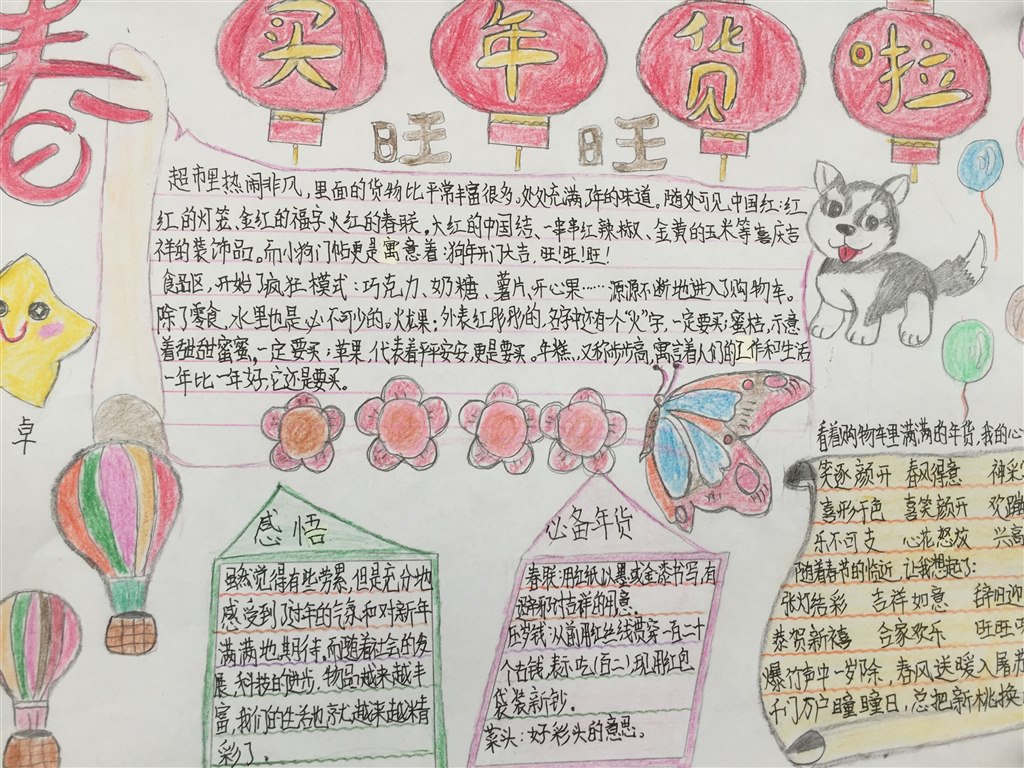 春
买年货啦
旺旺
超市里热闹非凡，里面的货物比平常丰富很多。处处充满了年的味道。随处可见中国红：红
红的灯笼、金红的福字、火红的春联。大红的中国结、一串串红辣椒、金黄的玉米等喜庆吉
祥的装饰品。而小狗门帖更是寓意着：狗年开门大吉，旺！旺！旺！
食品区，开始了疯狂模式：巧克力、奶糖、薯片、开心果……源源不断地进入了购物车。
除了零食，水果也是必不可少的。火龙果；外表红彤彤的，名字中还有个“火”字，一定要买；蜜桔，示意
着甜甜蜜蜜，一定要买；苹果，代表着平平安安，更是要买。年糕，又称步步高，寓言着人们的工作和生活
一年比一年好，它还是要买。
卓
感悟
虽然觉得有些劳累，但是充分地
感受到了过年的气氛和对新年
满满地期待，而随着社会的发
展，科技的进步，物品越来越丰
富，我们的生活也就越来越精
彩了。
必备年货
春联：用红纸以墨或金漆书写，有
迎新吉祥的用意。
压岁钱：以前用红丝线贯穿一百二十
个古钱，表示吃(百二)，现用红包
袋装新钞。
菜头：好彩头的意思。
看着购物车里满满的年货，我的心
笑逐颜开 春风得意 神采
喜形于色 喜笑颜开 欢蹦
乐不可支 心花怒放 兴高
随着春节的临近，让我想起了：
张灯结彩 吉祥如意 辞旧迎
恭贺新禧 合家欢乐 旺旺
爆竹声中一岁除，春风送暖入屠
千门万户瞳瞳日，总把新桃换